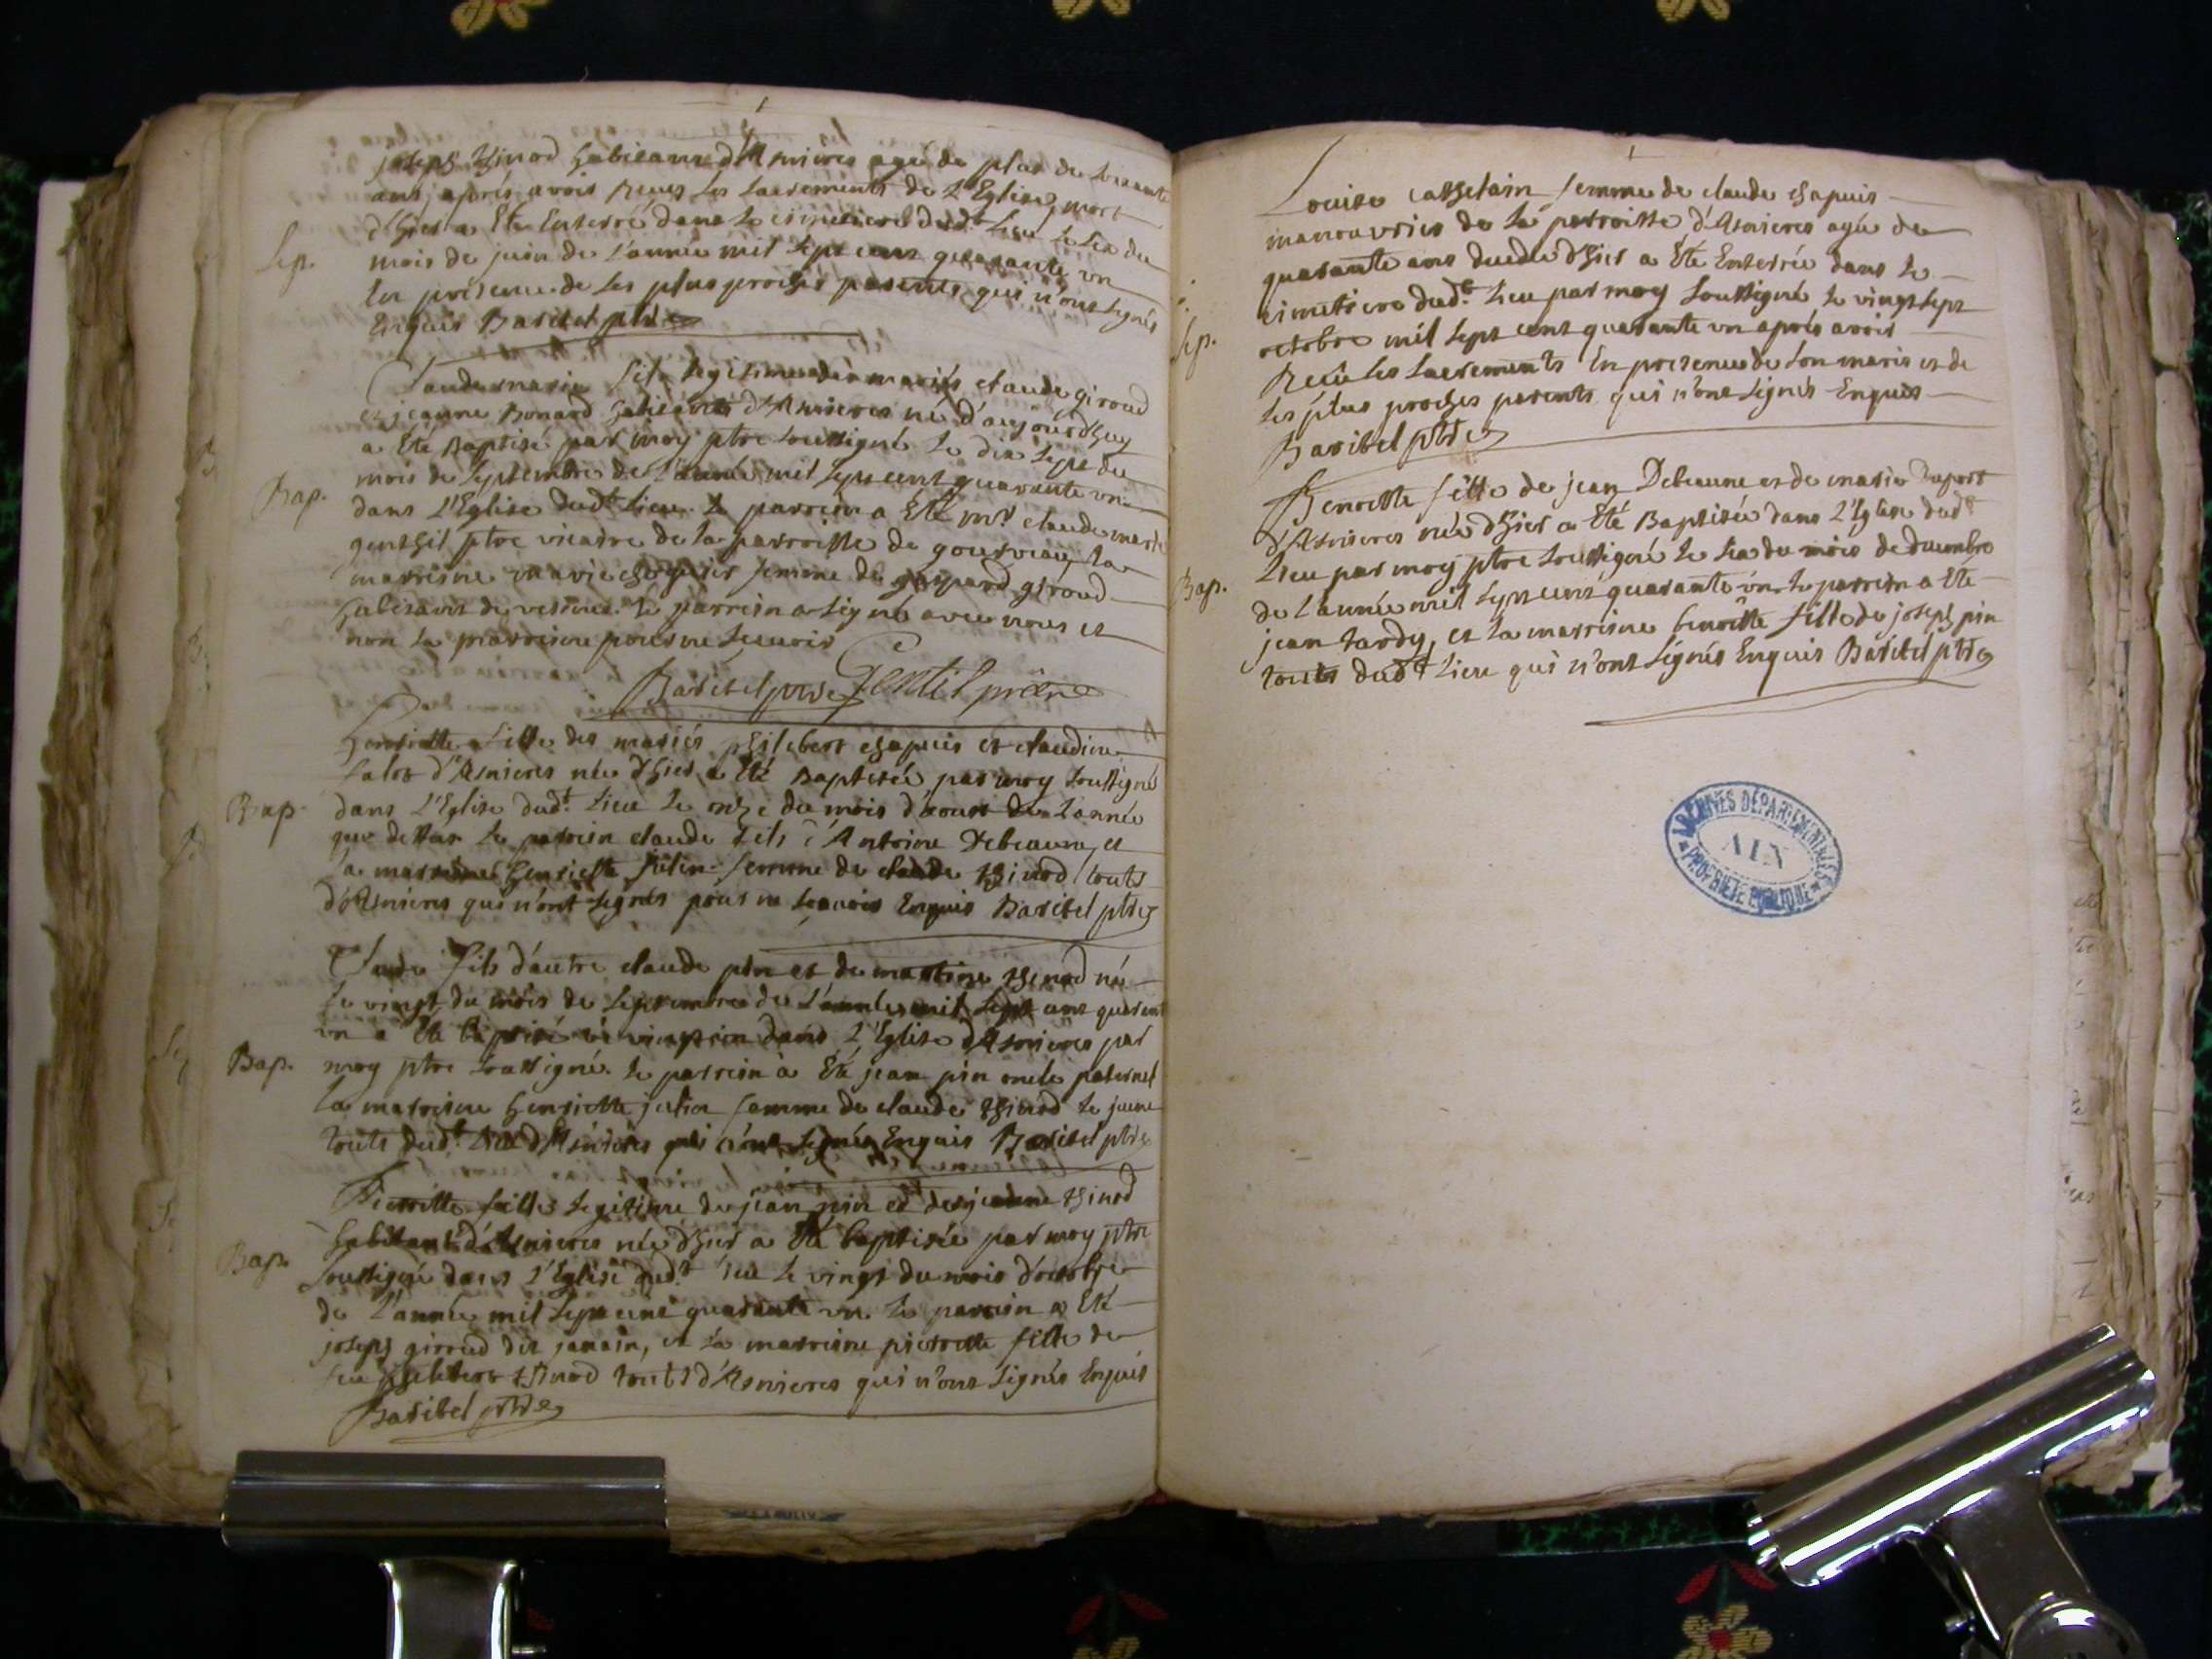 joseph Thinod habitant d'Asnieres agé de plus de soixante
ans, après avoir Reçus les sacrements de L'Eglise, mort
d'hier a Eté Enterré dans le cimetiere dudt Lieu le six du
Sep.
mois de juin de L'année mil sept cent quarante un
En présence de ses plus proches parents qui n'ont signés
Enquis Baritel ptre
Claude marie fils legitime des mariés claude giroud
et jeanne Bonard habitants d'Asnieres né d'aujourdhuy
a Eté Baptisé par moy ptre soussigné le dix sept du
Bap.
mois de septembre de L'année mil sept cent quarante un
dans L'Eglise dudt Lieu. le parrein a Eté mr claude marie
genthil ptre vicaire de la parroisse de gourveau, la
marreine marie femme de gaspard giroud
habitants de le parrein a signé avec nous et
non la marreine pour ne scavoir
Baritel ptre Gentil prêtre
henriette fille des mariés philibert chapuis et claudine
d'Asnieres née d'hier a Eté Baptisée par moy soussigné
Bap.
dans L'Eglise dudt Lieu le onze du mois d'aoust de L'année
que dessus le parrein claude fils d'Antoine Debeaune, et
la marreine henriette julin femme de claude Thinod touts
d'Asnieres qui n'ont signés pour ne scavoir Enquis Baritel ptre
Claude fils d'autre claude pin et de martine Thinod né
le vingt du mois de septembre de L'année mil sept cent quarante
un a Eté baptisé le dans L'Eglise d'Asnieres par
Bap.
moy ptre soussigné. le parrein a Eté jean pin oncle paternel
la marreine henriette julin femme de claude Thinod le jeune
touts dudt Lieu d'Asnieres qui n'ont signés Enquis Baritel ptre
Pierrette fille legitime de jean pin et de jeanne Thinod
habitants d'Asnieres née d'hier a Eté baptisée par moy ptre
Bap.
soussigné dans L'Eglise dudt Lieu le vingt du mois d'octobre
de L'année mil sept cent quarante un. le parrein a Eté
joseph girroud dit janain, et la marreine pierrette fille de
feu philibert Thinod touts d'Asnieres qui n'ont signés Enquis
Baritel ptre
Louise cathelain femme de claude chapuis
manouvrier de la parroisse d'Asnieres agée de
quarante ans d'hier a Eté Enterrée dans le
cimetiere dudt Lieu par moy soussigné le vingt sept
Sep.
octobre mil sept cent quarante un après avoir
Reçu les sacrements En presence de son maris et de
ses plus proches parents qui n'ont signés Enquis
Baritel ptre
Benoitte fille de jean Debeaune et de marie
d'Asnieres née d'hier a Eté Baptisée dans L'Eglise dudt
Bap.
Lieu par moy ptre soussigné le six du mois de decembre
de L'année mil sept cent quarante un. le parrein a Eté
jean tardy, et la marreine benoitte fille de joseph pin
touts dudt Lieu qui n'ont signés Enquis Baritel ptre
ARCHIVES DÉPARTEMENTALES
AIN
PROPRIÉTÉ PUBLIQUE